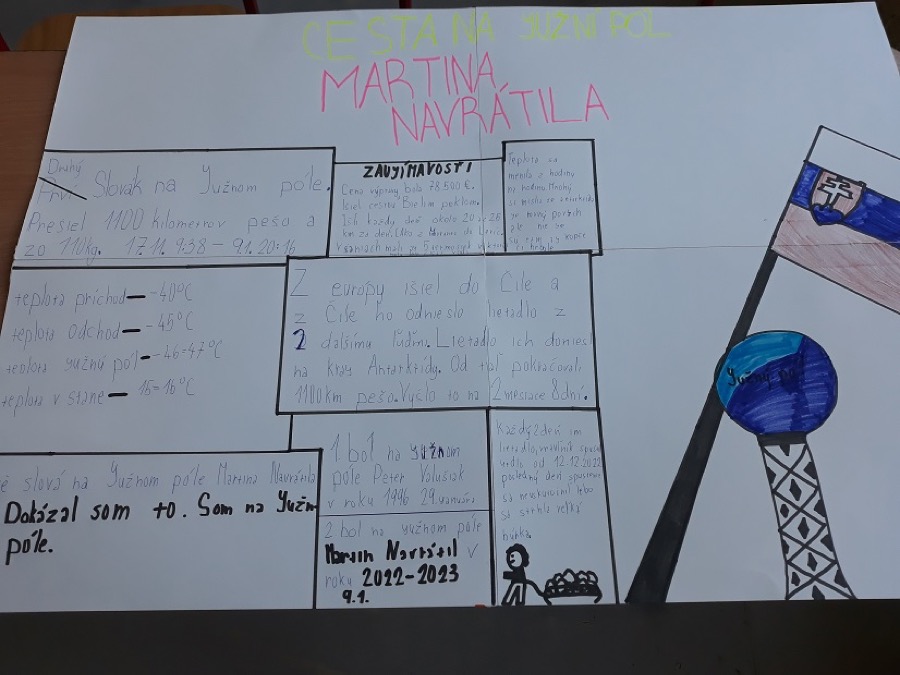 CESTA NA JUŽNÍ PÓL
MARTINA
NAVRÁTILA
Druhý
Prví Slovák na Južnom póle.
Presiel 1100 kilometrov pešo a
zo 110kg. 17.11. 9:38 – 9.1. 20:16
ZAUJÍMAVOSTI
Cena výpravy bola 78 500 €.
Išiel cestou Bielim peklom.
Išli každy deň okolo 20 až 25
km za deň.
V saniach mali
Teplota sa
menila z hodiny
na hodinu. Mnohý
si myslia ze antarktída
je rovný povrch
ale nie je
sú tam aj kopce
teplota príchod – -40°C
teplota odchod – -45°C
teplota južný pól – -46=47°C
teplota v stane – 15=16°C
Z európy išiel do Čile a
z Čile ho odnieslo lietadlo z
2 dalšíma ľuďmi. Lietadlo ich doniesl
na kray Antarktídy. Od tial pokračovali
1100km pešo. Vyšlo to na 2 mesiace 8dní.
é slová na Južnom póle Martina Navrátila
Dokázal som to. Som na Južn
póle.
1 bol na južnom
póle Peter Valušiak
v roku 1996 29. januára
2 bol na južnom póle
Martin Navrátil v
roku 2022-2023
9.1.
Každý 2 deň im
lietadlo
jedlo od 12.12.2022
posledný deň
sa neuskutočnil lebo
sa strhla veľká
búrka.
Južný pól